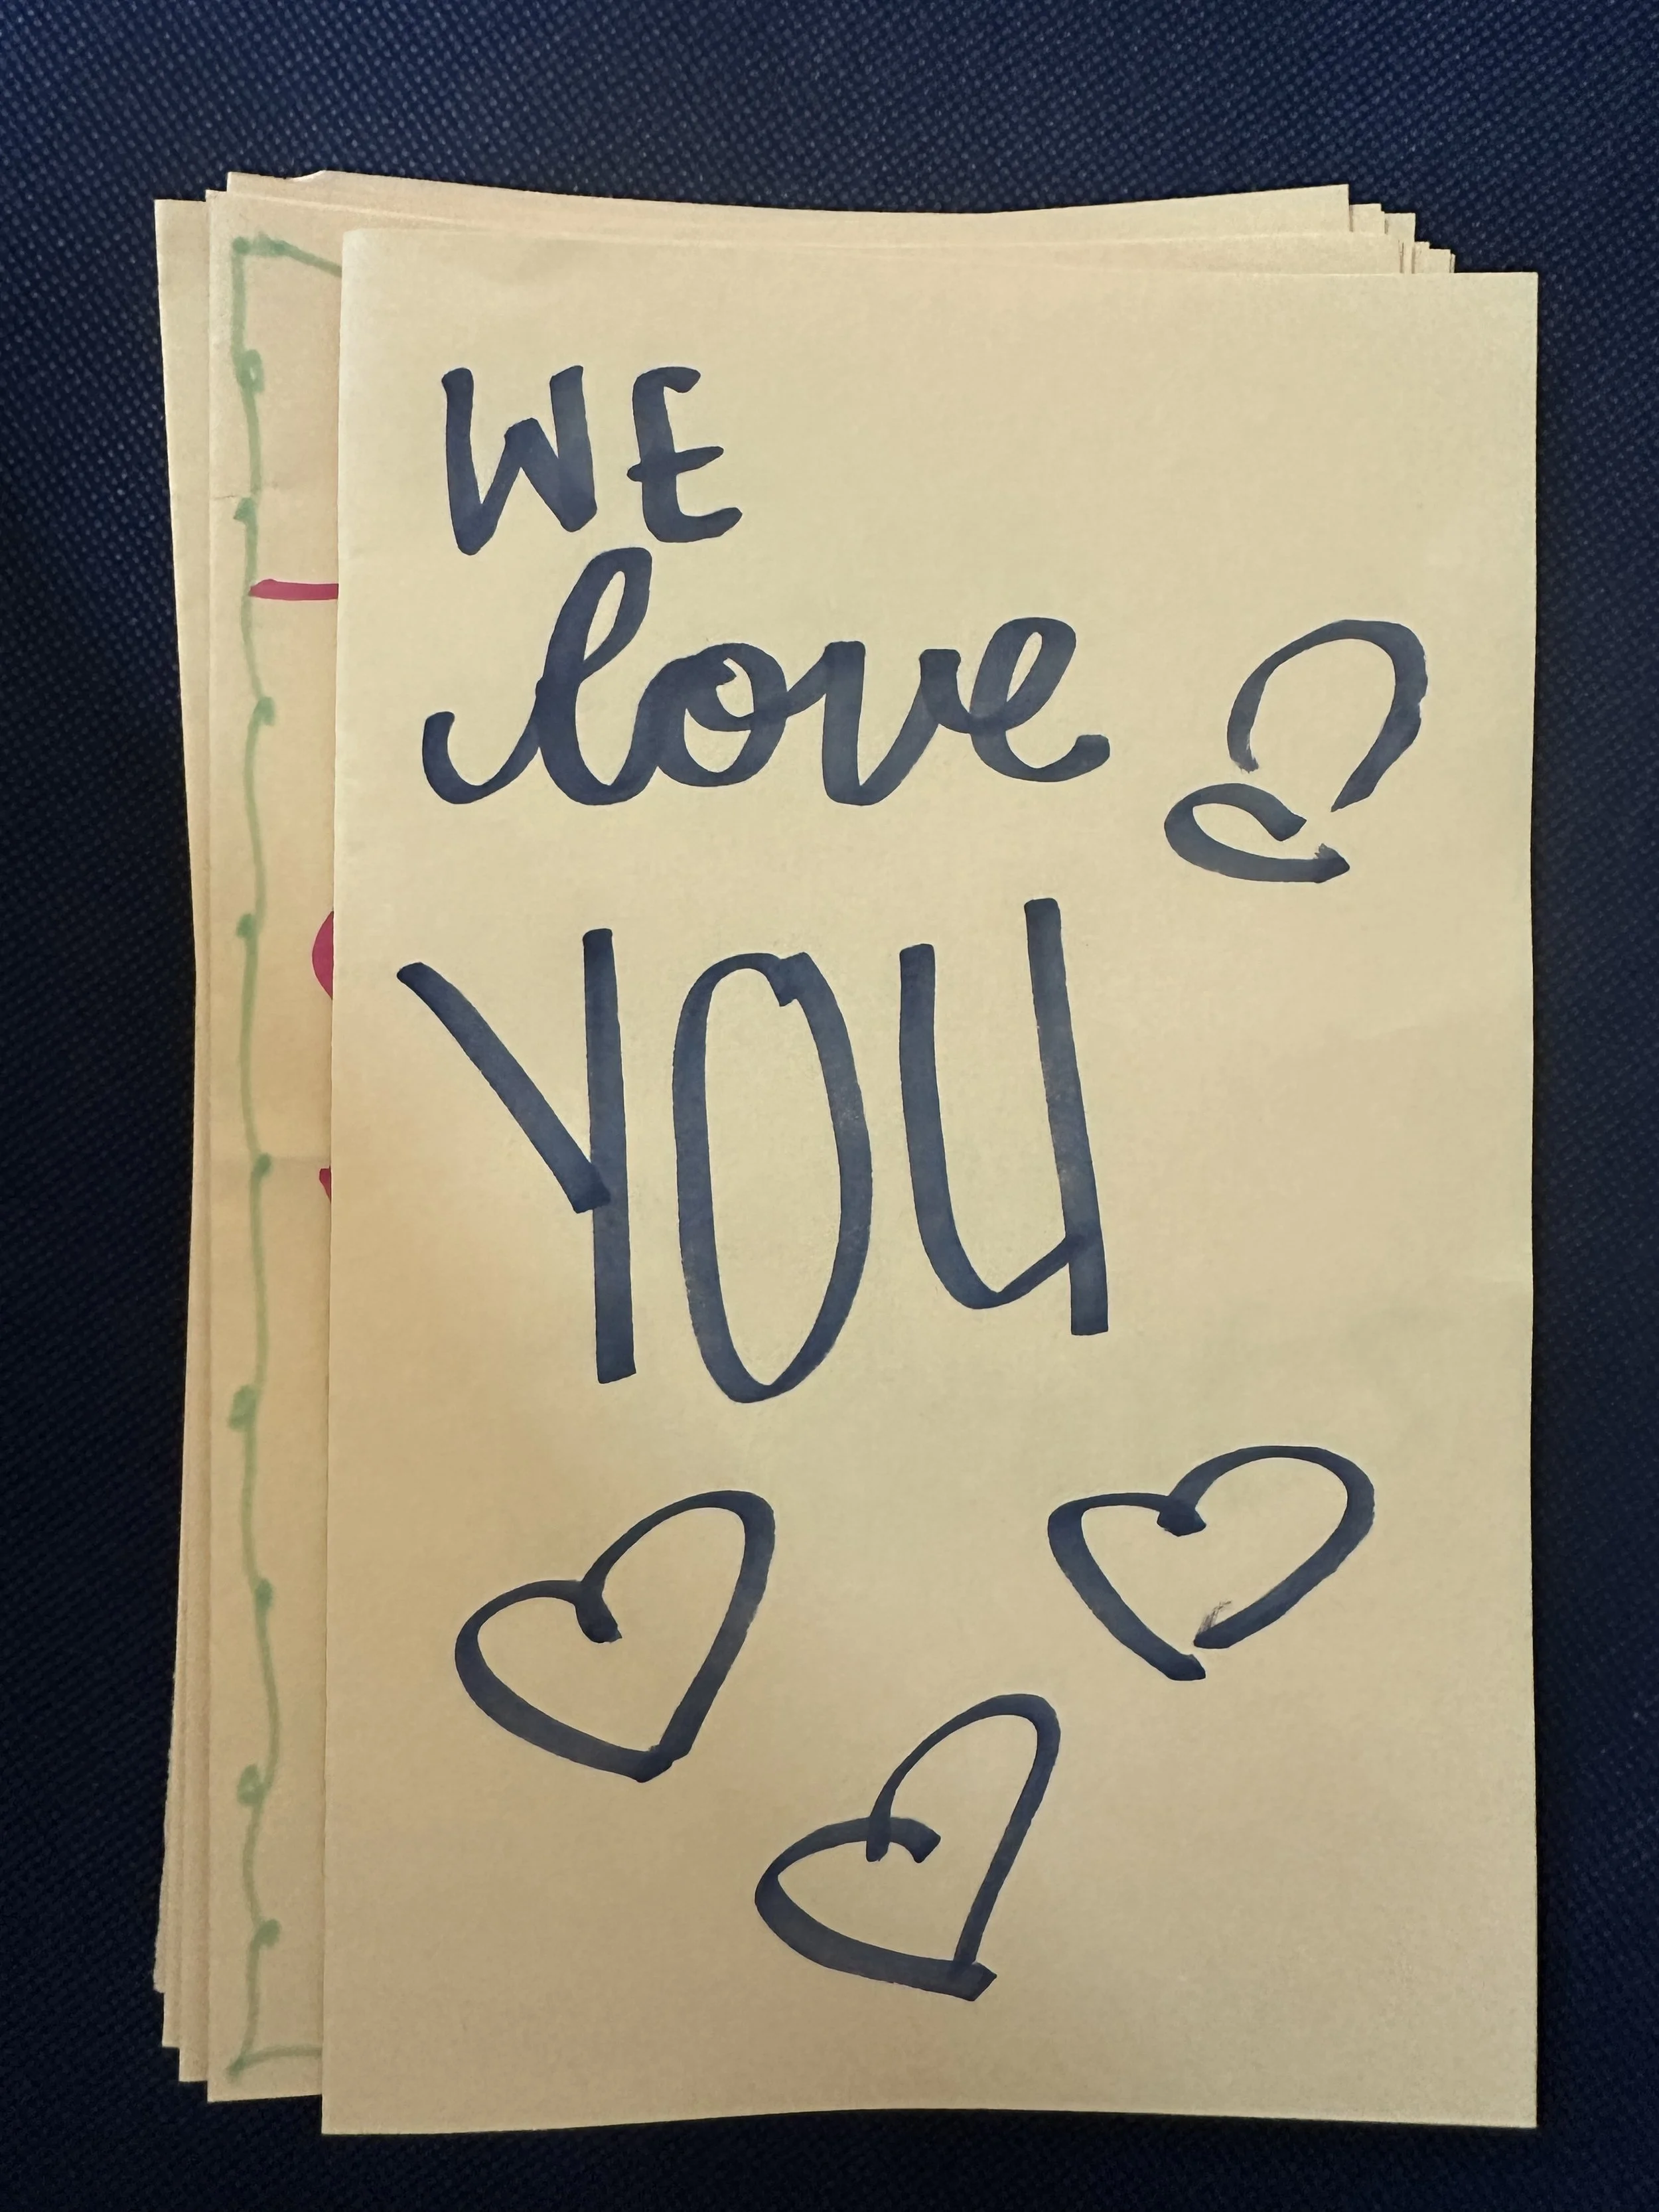 WE
love
YOU